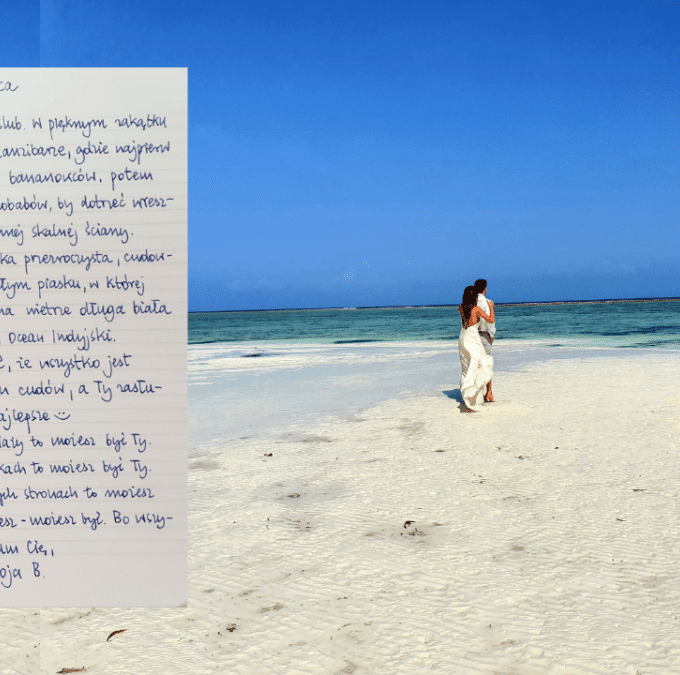 ca
ślub. W pięknym zakątku
anzibarze, gdzie najpierw
bananowców, potem
obabów, by dotrzeć wresz-
nej skalnej ściany.
ka przezroczysta, cudow-
łym piasku, w której
na wietrze długa biała
Ocean Indyjski.
ć, że wszystko jest
u cudów, a Ty zasłu-
ajlepsze
iały to możesz być Ty.
kach to możesz być Ty.
ych stronach to możesz
esz - możesz być. Bo wszy-
am Cię,
oja B.